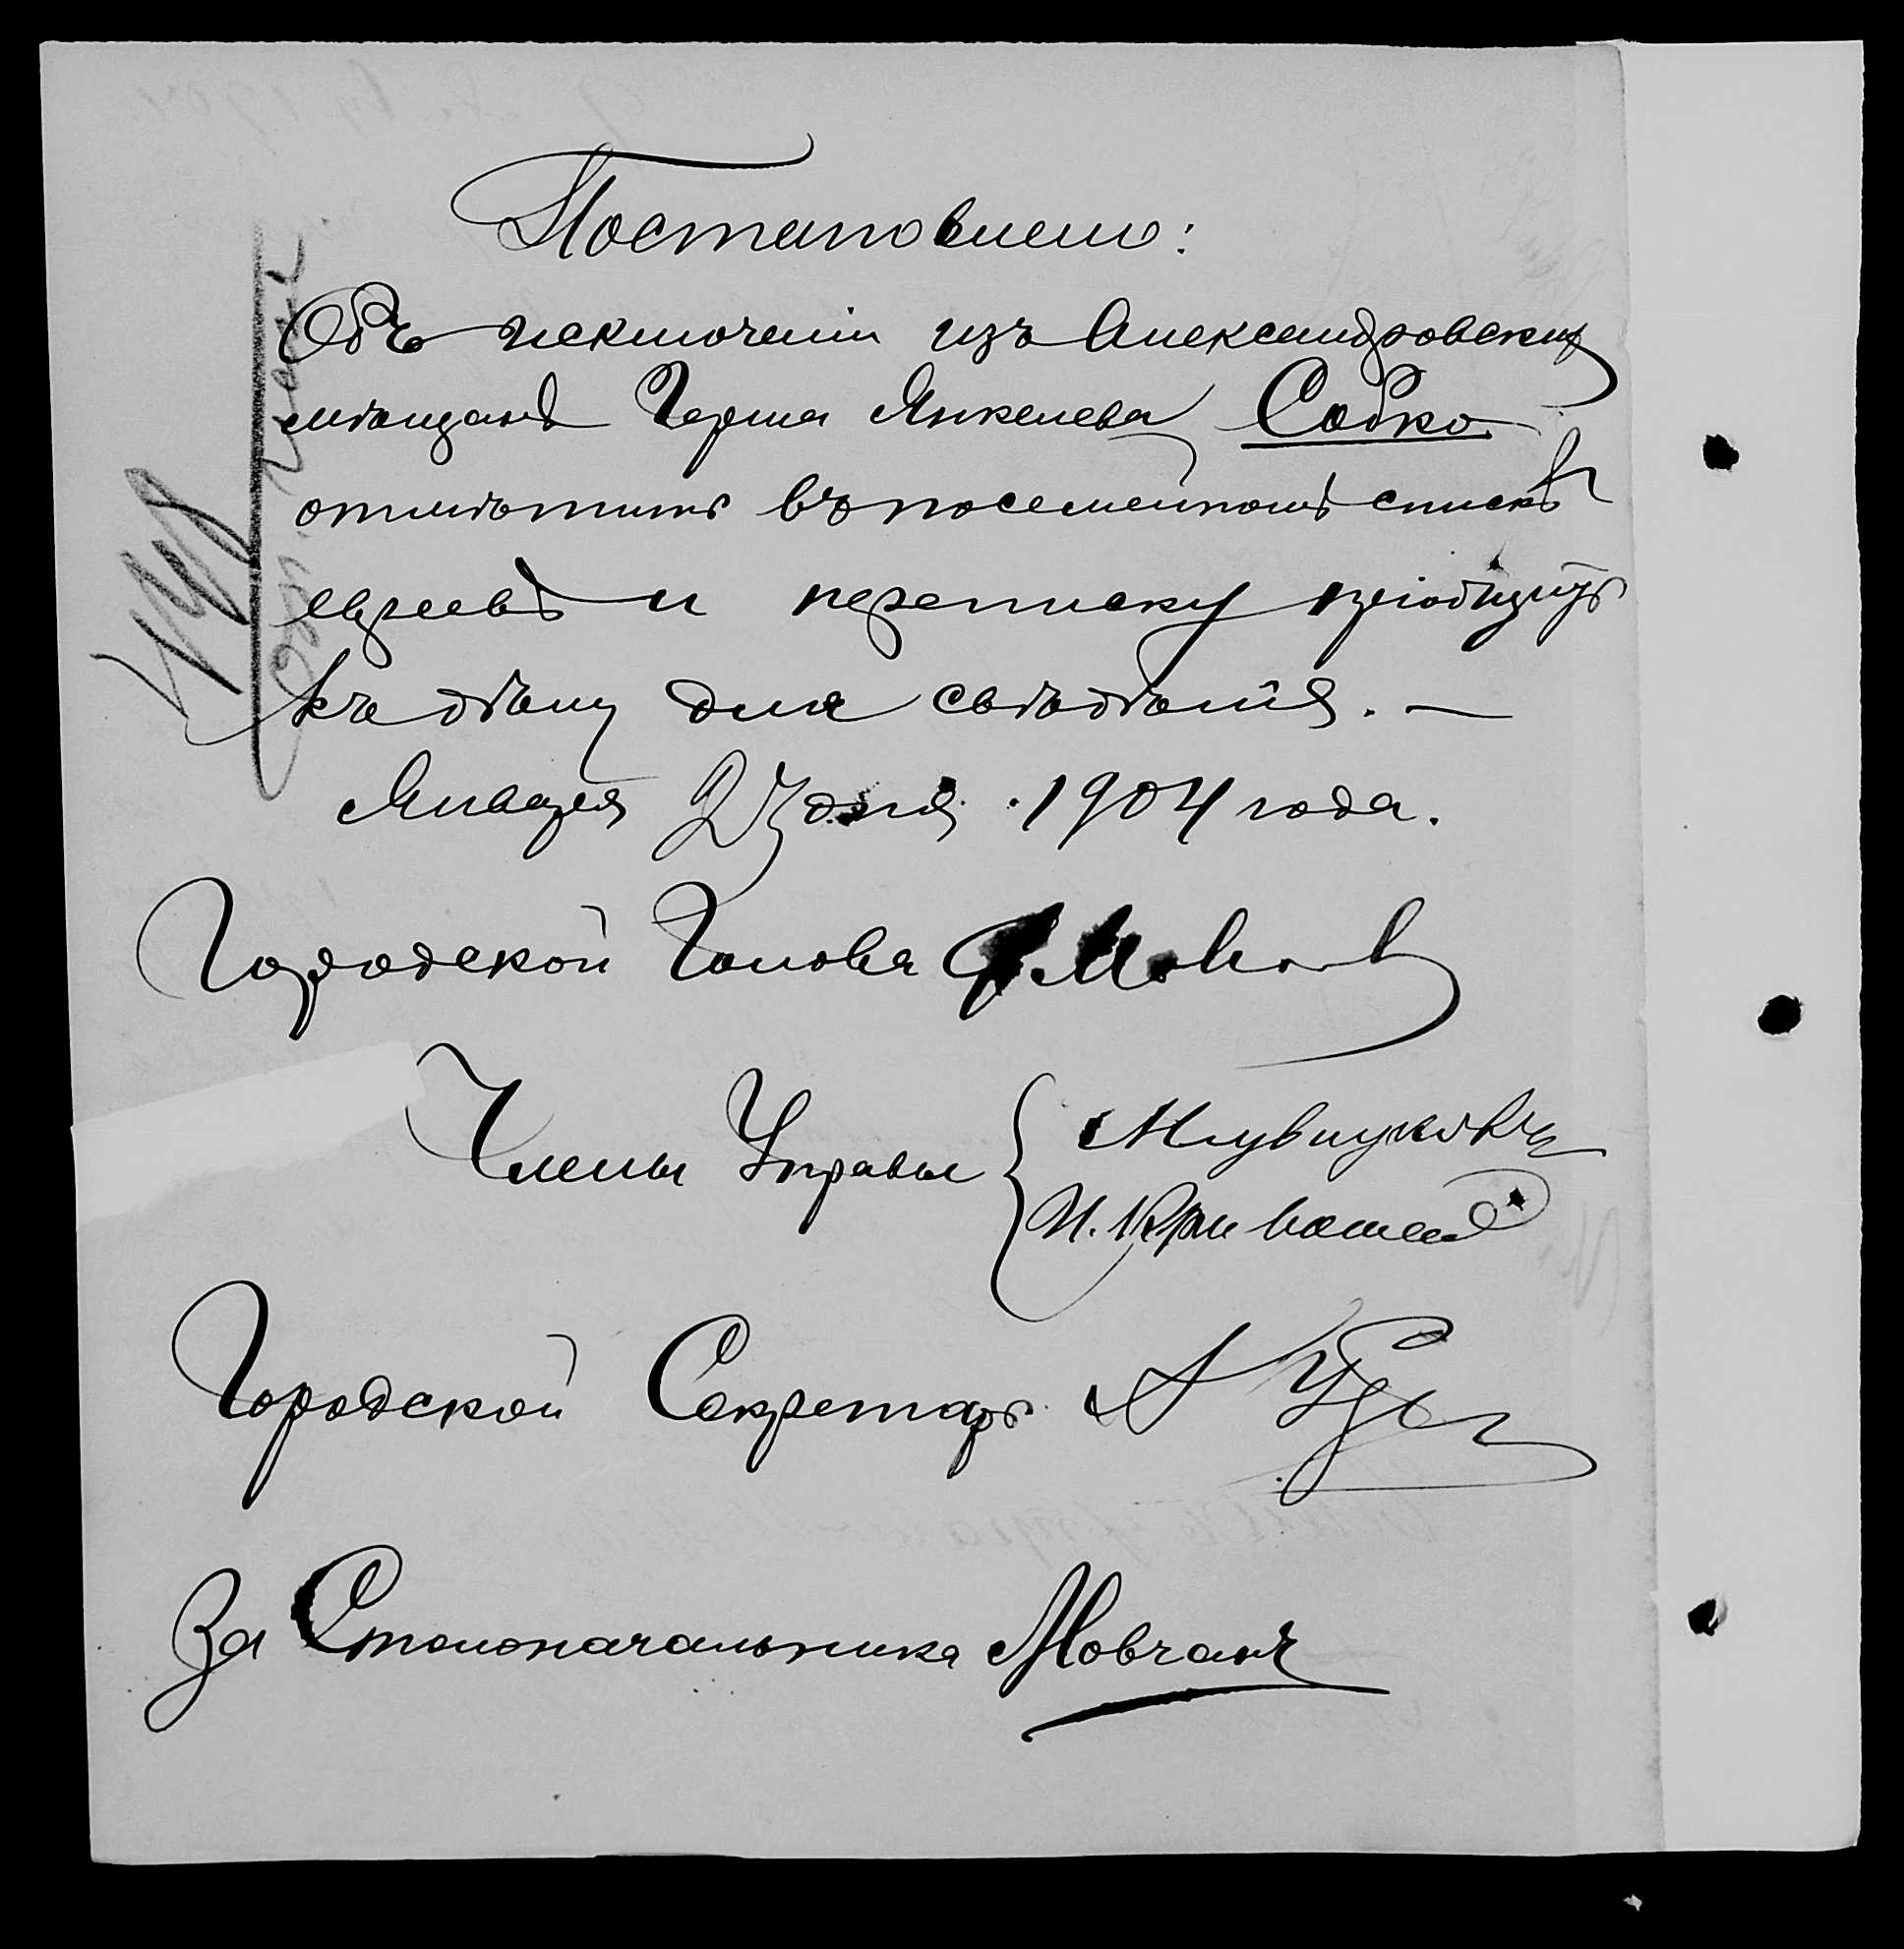 Постановлено:
Объ исключеніи изъ Александровских
мѣщанъ Герша Янкелева Собко
отмѣтить въ посемейномъ спискѣ
евреевъ и переписку пріобщить
къ дѣлу для свѣдѣнія. —
Января 23 дня 1904 года.
Городской Голова Ф. Мовчан
Члены Управы
И. Кривошея
Городской Секретарь А
За Столоначальника Мовчанъ